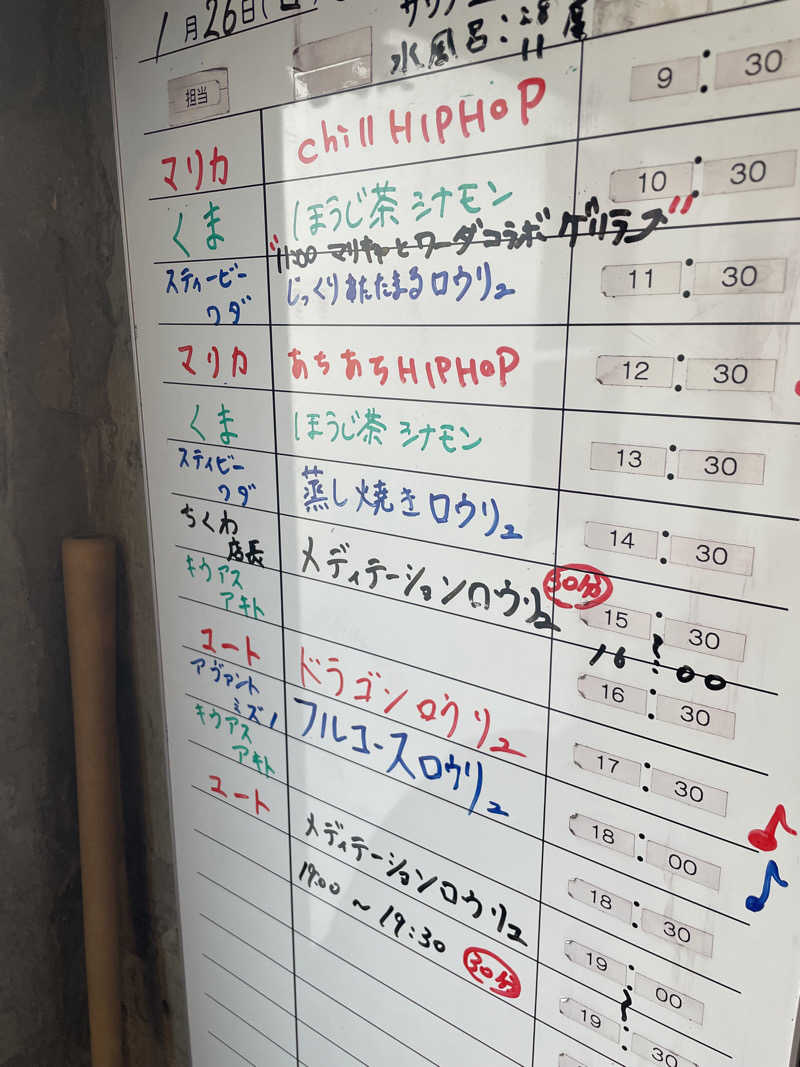 1月26日(
水風呂:28度
11
担当
マリカ chill HIPHOP 9:30
くま ほうじ茶シナモン 10:30
"11:00 マリキャとワーダコラボゲリラ"
スティービーワダ じっくりあたたまるロウリュ 11:30
マリカ あちあちHIPHOP 12:30
くま ほうじ茶シナモン 13:30
スティビーワダ 蒸し焼きロウリュ 14:30
ちくわ店長 メディテーションロウリュ 30分 15:30
〜16:00
キウアスアキト 16:30
ユート ドラゴンロウリュ 17:30
アヴァントミズノ フルコースロウリュ 18:00
キウアスアキト 18:30
ユート メディテーションロウリュ 19:00
19:00〜19:30 30分 〜19:30